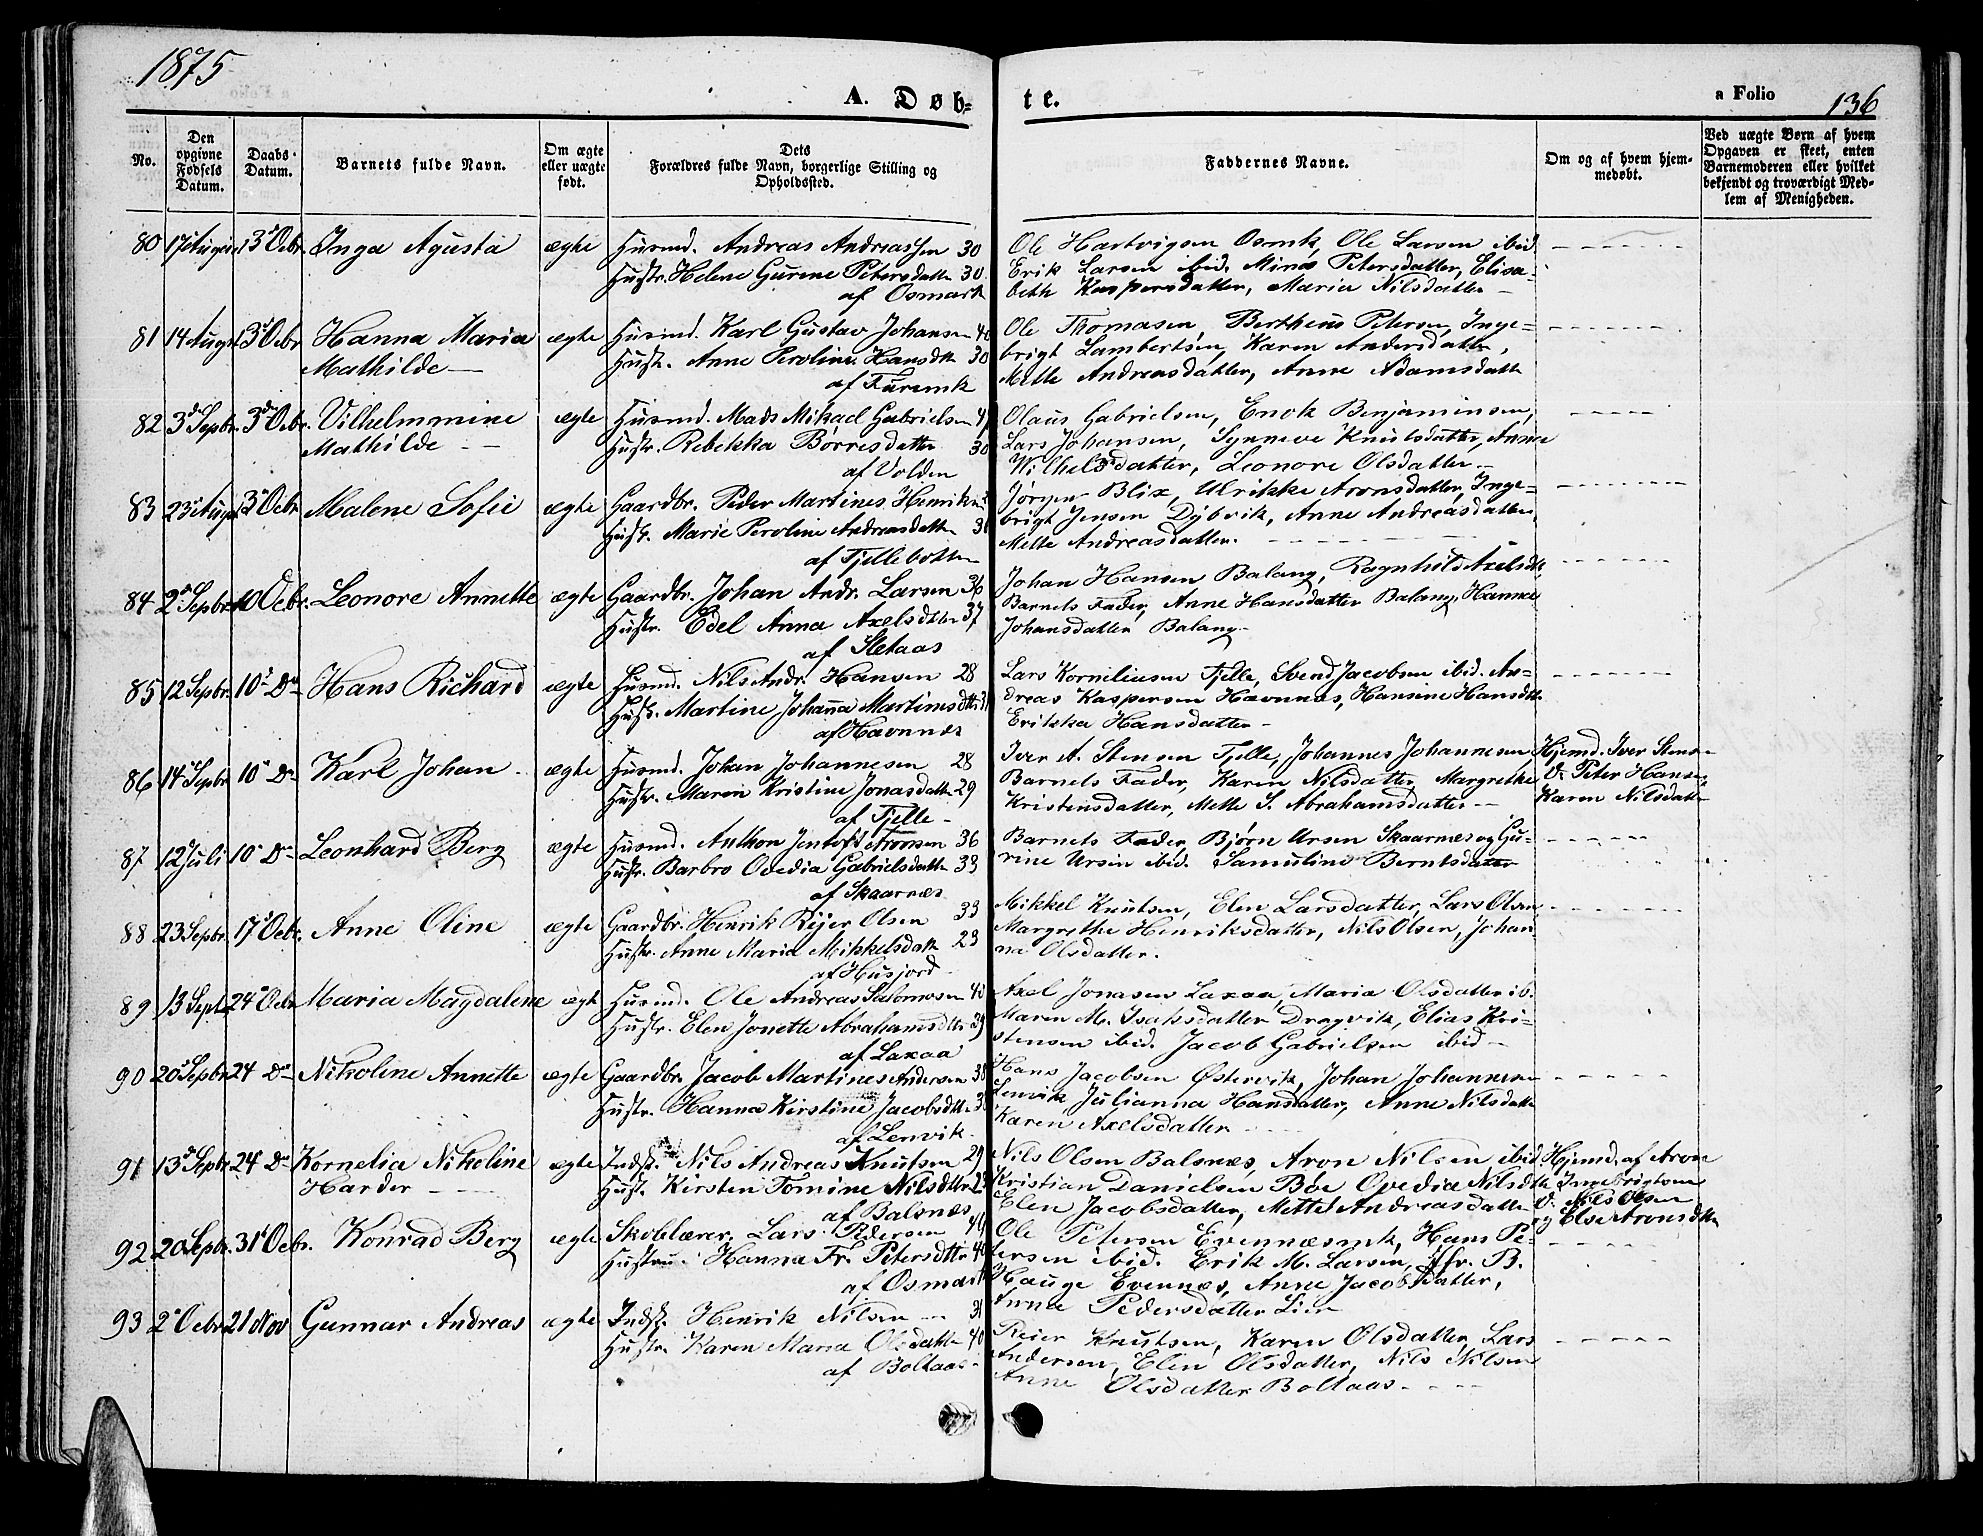 1875
A. Døb-
te.
a Folio
136
No.
Den opgivne Fødsels Datum.
Daabs-Datum.
Barnets fulde Navn.
Om ægte eller uægte født.
Dets Forældres fulde Navn, borgerlige Stilling og Opholdssted.
Faddernes Navne.
Om og af hvem hjemmedøbt.
Ved uægte Børn af hvem Opgaven er skeet, enten Barnemoderen eller hvilket bekjendt og troværdigt Medlem af Menigheden.
80 17 August 3 Octbr. Inga Agusta ægte Husmd. Andreas Andreassen 30
Hustr. Helene Gurine Petersdatter 30
af Osmark
Ole Hartvigsen Osmk, Ole Larsen ibid.
Erik Larsen ibid. Mina Petersdatter, Elisa-
beth Kaspersdatter, Maria Nilsdatter
81 14 Aug. 3 Octbr. Hanna Maria ægte Husmd. Karl Gustav Johansen 40
Mathilde Hustr. Anne Peroline Hansdtr 30
af Furemk
Ole Thomasen, Bertheus Petersen, Inge-
brigt Lambertsen, Karen Andersdatter,
Mette Andreasdatter, Anne Adamsdatt
82 3 Sepbr. 3 Octbr. Vilhelmmine ægte Husmd. Mads Mikael Gabrielsen
Mathilde Hustr. Rebekka Børresdatter 30
af Volden
Olaus Gabrielsen, Enok Benjaminsen,
Lars Johansen, Synneve Knutsdatter, Anne
Wilhelmsdatter, Leonore Olsdatter
83 23 Aug. 3 Octbr. Malene Sofie ægte Gaardbr. Peder Martines Henriksen
Hustr. Marie Peroline Andreasdatter
af Fjellebotten
Jørgen Blix, Ulrikke Aronsdatter, Inge-
brigt Jensen Dybvik, Anne Andreasdatter,
Mette Andreasdatter.
84 2 Sepbr. 10 Octbr. Leonore Annette ægte Gaardbr. Johan Andr. Larsen 36
Hustr. Edel Anna Axelsdtter 37
af Sletaas
Johan Hansen Balang, Ragnhild Axelsdtr,
Barnets Fader, Anne Hansdatter Balang, Hanna
Johansdatter Balang
85 12 Sepbr. 10 Do Hans Richard ægte Husmd. Nils Andr. Hansen 28
Hustr. Martine Johanna Martinisdtr
af Havnnæs
Lars Korneliusen Fjelle, Svend Jacobsen ibid. An-
dreas Kaspersen Havnnæs, Hansine Hansdtr
Erikka Hansdatter
86 14 Sepbr. 10 Do Karl Johan ægte Husmd. Johan Johannesen 28
Hustr. Maren Kristine Jonasdatter 29
af Fjelle
Iver A. Stensen Fjelle, Johannes Johannesen
Barnets Fader, Karen Nilsdatter, Margrethe
Kristensdatter, Mette S. Abrahamsdatter
Hjemd. Iver Stensen
V. Peter Hansen
Karen Nilsdatter
87 12 Juli 10 Do Leonhard Berg ægte Husmd. Anthon Jentoft Aronsen 36
Hustr. Barbro Ovedia Gabrielsdatter 33
af Skaarnæs
Barnets Fader, Bjørn Ursin Skaarnæs og Gu-
rine Ursin ibid. Samuline Berntsdatter
88 23 Sepbr. 17 Octbr. Anne Oline ægte Gaardbr. Henrik Reyer Olsen 33
Hustr. Anne Maria Mikkelsdatt 23
af Husjord
Mikkel Knutsen, Elen Larsdatter, Lars Olsen
Margrethe Henriksdatter, Nils Olsen, Johan-
na Olsdatter.
89 13 Sept. 24 Octbr. Maria Magdalene ægt Husmd. Ole Andreas Salomosen 40
Hustr. Elen Jonette Abrahamsdtter 39
af Laxaa
Axel Jonasen Laxaa, Maria Olsdatter ib.
Maren M. Isaksdatter Dragvik, Elias Kri-
stensen ibid. Jacob Gabrielsen ibid
90 20 Sepbr. 24 Do Nikoline Annette ægte Gaardbr. Jacob Martines Andersen 38
Hustr. Hanna Kirstine Jacobsdtter
af Lenvik
Hans Jacobsen Østervik, Johan Johannesen
Lenvik, Julianna Hansdatter, Anne Nilsdatter
Karen Axelsdatter
91 13 Sepbr. 24 Do Kornelia Nikoline ægte Indst. Nils Andreas Knutsen 29
Harder Hust. Kirsten Tomine Nilsdtter 23
af Balsnæs
Nils Olsen Balsnæs, Aron Nilsen ibid.
Kristian Danielsen Bøe, Ovedia Nilsdtr
Elen Jacobsdatter, Mette Andreasdatter
Hjemd. af Aron
Ingebrigtsen
V. Nils Olsen
og Else Aronsdtr
92 20 Sepbr. 31 Octbr. Konrad Berg ægte Skolelærer. Lars Pedersen 44
Hustru. Hanna Fr. Petersdtter 40
af Osmark
Ole Petersen Evennæsmk, Hans Pe-
tersen ibid. Erik M. Larsen, Jfr. B.
Hauge Evennæs, Anne Jacobsdatter,
Anna Pedersdatter Lien
93 2 Octbr 21 Nov Gunnar Andreas ægte Indst. Henrik Nilsen
Hustr. Karen Maria Olsdatter 40
af Boltaas
Reier Knutsen, Karen Olsdatter, Lars
Andersen, Elin Olsdatter, Nils Nilsen
Anne Olsdatter Boltaas